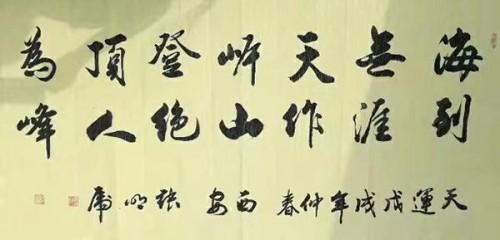 海到
無涯
天作
岸山
登绝
頂人
為峰
天運戊戌年仲春 西安 張明虎